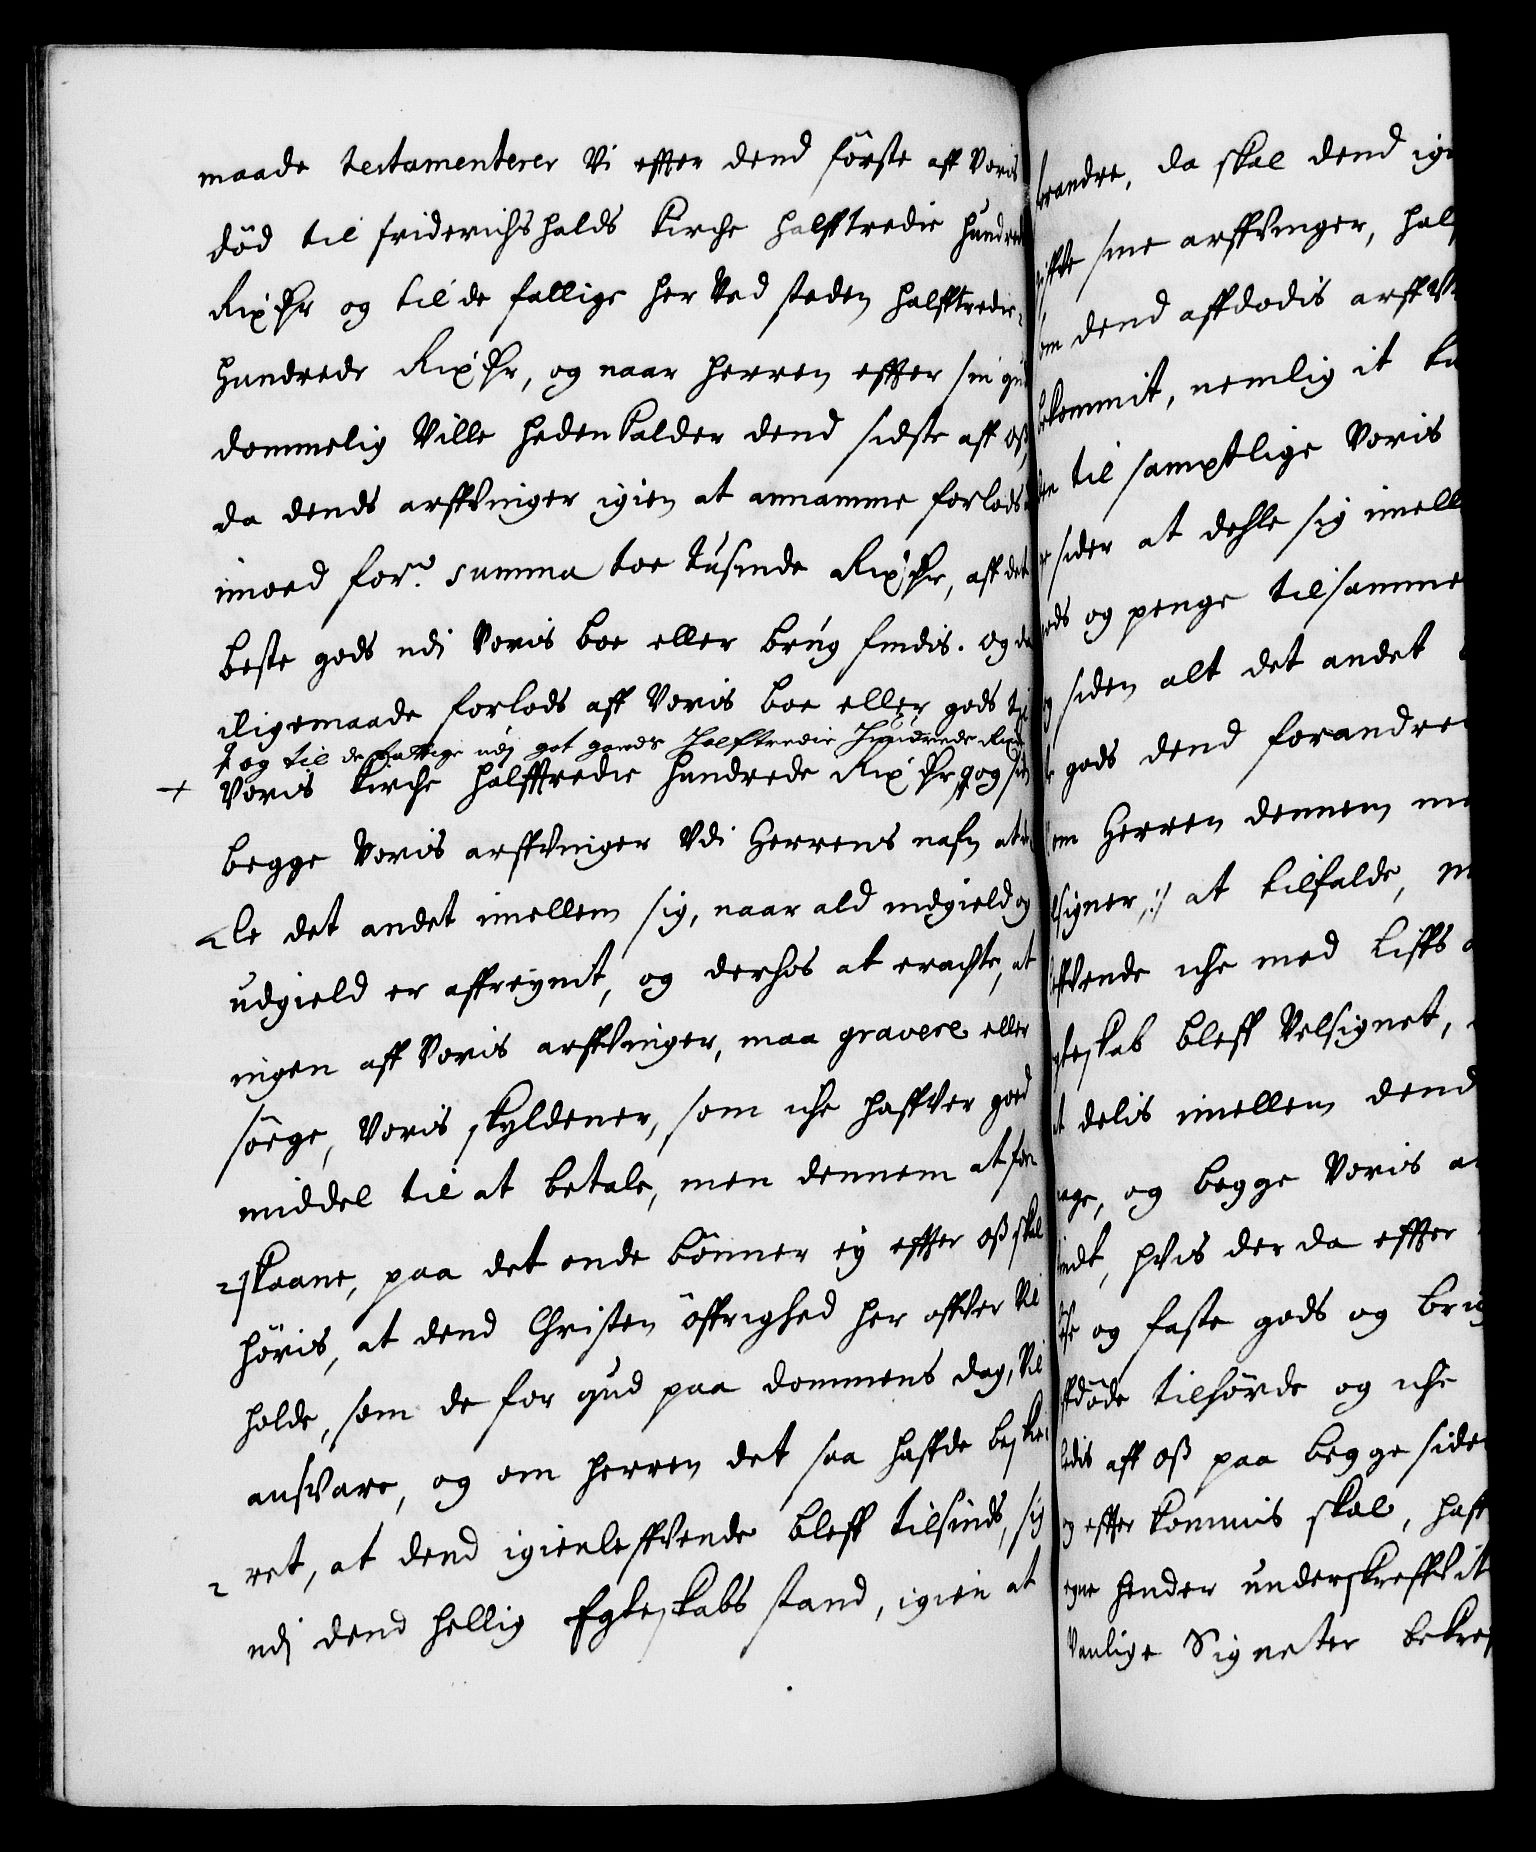 maade testamenterer Vi effter dend förste aff Voris
död til friderichshalds Kirche halfftredie hundred
Rix dr og til de fattige her Ved steden halfftredie-
hundrede Rix dr, og naar Herren effter sin gu
dommelig Ville hedenkalder dend sidste aff oß,
da dends arffvinger igien at annamme forlods
imod for: summa toe tusinde Rix dr, aff det
beste gods udi Voris boe eller brug findis. og da
iligemaade forlods aff Voris boe eller gods til
† og til de fattige udj got gands Halftredie Hundrede Rixdr
+ Voris Kirche halfftredie hundrede Rix dr, og siden
begge Voris arffvinger Vdi Herrens nafn at
le det andet imellem sig, naar ald indgield og
udgield er affregnit, og derhos at erachte, at
ingen aff Voris arffvinger, maa gravere eller
söege, Voris skyldener, som iche haffver goed
middel til at betale, men dennem at for
skaane, paa det onde bönner ej effter oß skal
höris, at dend Christen öffrighed her offver Vil
holde, som de for gud paa dommens dag, Vil
ansvare, og om Herren det saa haffde beske-
ret, at dend igienleffvende bleff tilsinds, sig
udj dend hellig Egteskabs stand, igien at
brandre, da skal dend igi
sine arffvinger, hal
om dend affdödis arffvi
bekommit, nemlig it
til samptlige Voris
sider at dehle sig imell
gods og penge tilsamme
og siden alt det andet
gods dend forandre
om Herren dennem m
signer :/ at tilfalde, m
effvende iche med Liffs
gteskab bleff Velsignet,
delis imellem dend
age, og begge Voris a
indt, hvis der da effter
og faste gods og brug
ffdöde tilhörde og iche
aff oß paa begge side
og effter kommis skal, haff
egne Hender underskreffvit
Vanlige Signeter bekref